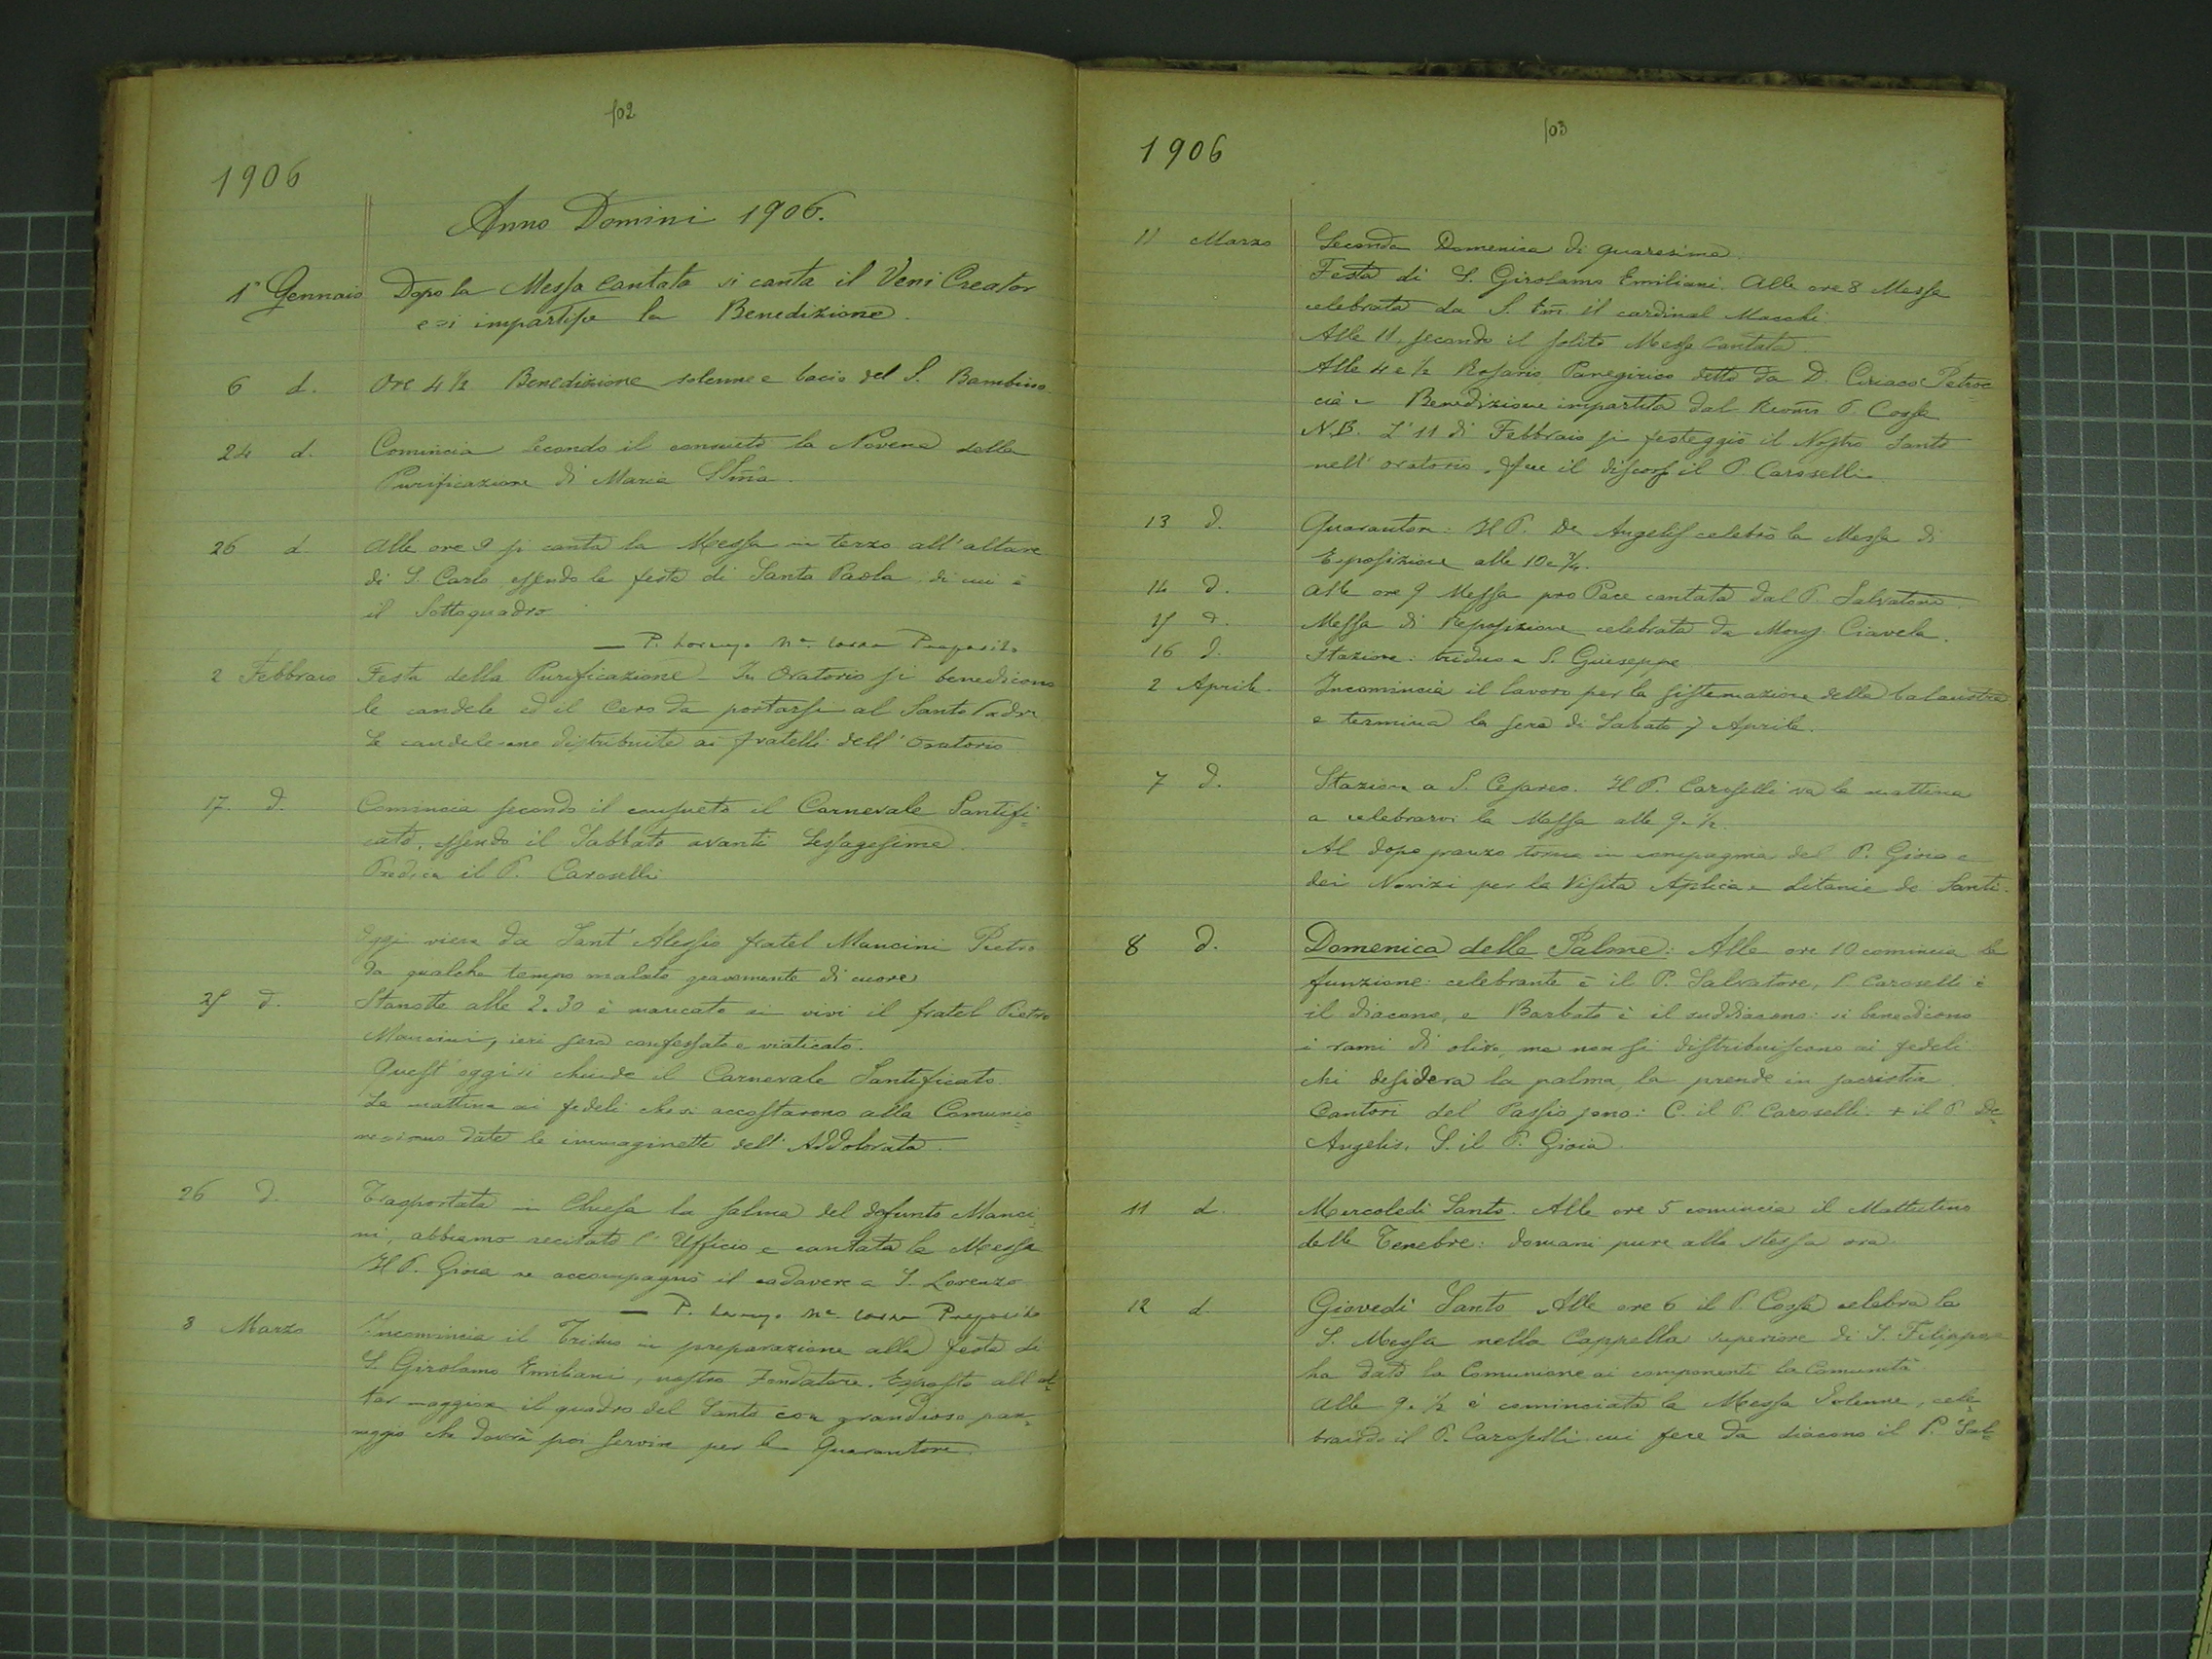 102
1906
Anno Domini 1906.
1° Gennaio Dopo la Messa Cantata si canta il Veni Creator
e si impartisce la Benedizione.
6 d. Ore 4 ½ Benedizione solenne e bacio del S. Bambino.
24 d. Comincia secondo il consueto la Novena della
Purificazione di Maria SSma.
26 d. Alle ore 9 si canta la Messa in terzo all'altare
di S. Carlo essendo la festa di Santa Paola di cui è
il sottoquadro
— P. Lorenzo Ma Cossa Preposito
2 Febbraio Festa della Purificazione – In Oratorio si benedicono
le candele ed il Cero da portarsi al Santo Padre
Le candele sono distribuite ai fratelli dell'Oratorio
17. d. Comincia secondo il consueto il Carnevale Santifi=
cato, essendo il Sabbato avanti Sessagesima.
Predica il P. Caroselli
Oggi viene da Sant'Alessio fratel Mancini Pietro
da qualche tempo malato gravemente di cuore
25 d. Stanotte alle 2.30 è mancato ai vivi il fratel Pietro
Mancini, ieri sera confessato e viaticato.
Quest'oggi si chiude il Carnevale Santificato.
La mattina ai fedeli che si accostarono alla Comunio=
ne sono date le immaginette dell'Addolorata.
26 d. Trasportata in Chiesa la salma del defunto Manci=
ni, abbiamo recitato l'Ufficio e cantata la Messa
Il P. Gioia ne accompagnò il cadavere a S. Lorenzo
— P. Lorenzo Ma Cossa Preposito
8 Marzo Incomincia il Triduo in preparazione alla festa di
S. Girolamo Emiliani, nostro Fondatore. Esposto all'al=
tar maggiore il quadro del Santo con grandioso par=
raggio che dovrà poi servire per le Quarantore.
103
1906
11 Marzo Seconda Domenica di quaresima.
Festa di S. Girolamo Emiliani. Alle ore 8 Messa
celebrata da S. Em. il cardinal Macchi.
Alle 11, secondo il solito Messa Cantata.
Alle 4 e ½ Rosario Panegirico detto da D. Ciriaco Petroc=
cia e Benedizione impartita dal Revmo P. Cossa
N.B. L'11 di Febbraio si festeggiò il Nostro Santo
nell'oratorio. Fece il discorso il P. Caroselli.
13 d. Quarantore: Il P. De Angelis celebrò la Messa di
Esposizione alle 10 e ¾.
14 d. Alle ore 9 Messa pro Pace cantata dal P. Salvatore.
15 d. Messa di Reposizione celebrata da Mons. Ciavela.
16 d. Stazione: triduo a S. Giuseppe
2 Aprile. Incomincia il lavoro per la sistemazione della balaustra
e termina la sera di Sabato 7 Aprile.
7 d. Stazione a S. Cesareo. Il P. Caroselli va la mattina
a celebrarvi la Messa alle 9. ½.
Al dopo pranzo torna in compagnia del P. Gioia e
dei Novizi per la Visita Aplica e litanie de Santi.
8 d. Domenica delle Palme: Alle ore 10 comincia la
funzione: celebrante è il P. Salvatore, P. Caroselli è
il diacono, e Barbato è il suddiacono: si benedicono
i rami di olivo, ma non si distribuiscono ai fedeli
chi desidera la palma, la prende in sacristia
Cantori del Passio sono: C. il P. Caroselli. + il P. De
Angelis. S. il P. Gioia.
11 d. Mercoledì Santo. Alle ore 5 comincia il Mattutino
delle Tenebre: domani pure alla stessa ora.
12 d. Giovedì Santo Alle ore 6 il P. Cossa celebra la
S. Messa nella Cappella superiore di S. Filippo e
ha dato la Comunione ai componenti la Comunità
Alle 9. ½ è cominciata la Messa Solenne, cele=
brando il P. Caroselli cui fece da diacono il P. Sal=